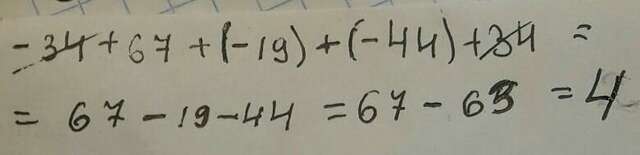 -34+67+(-19)+(-44)+34 =
= 67-19-44 =67-63 =4